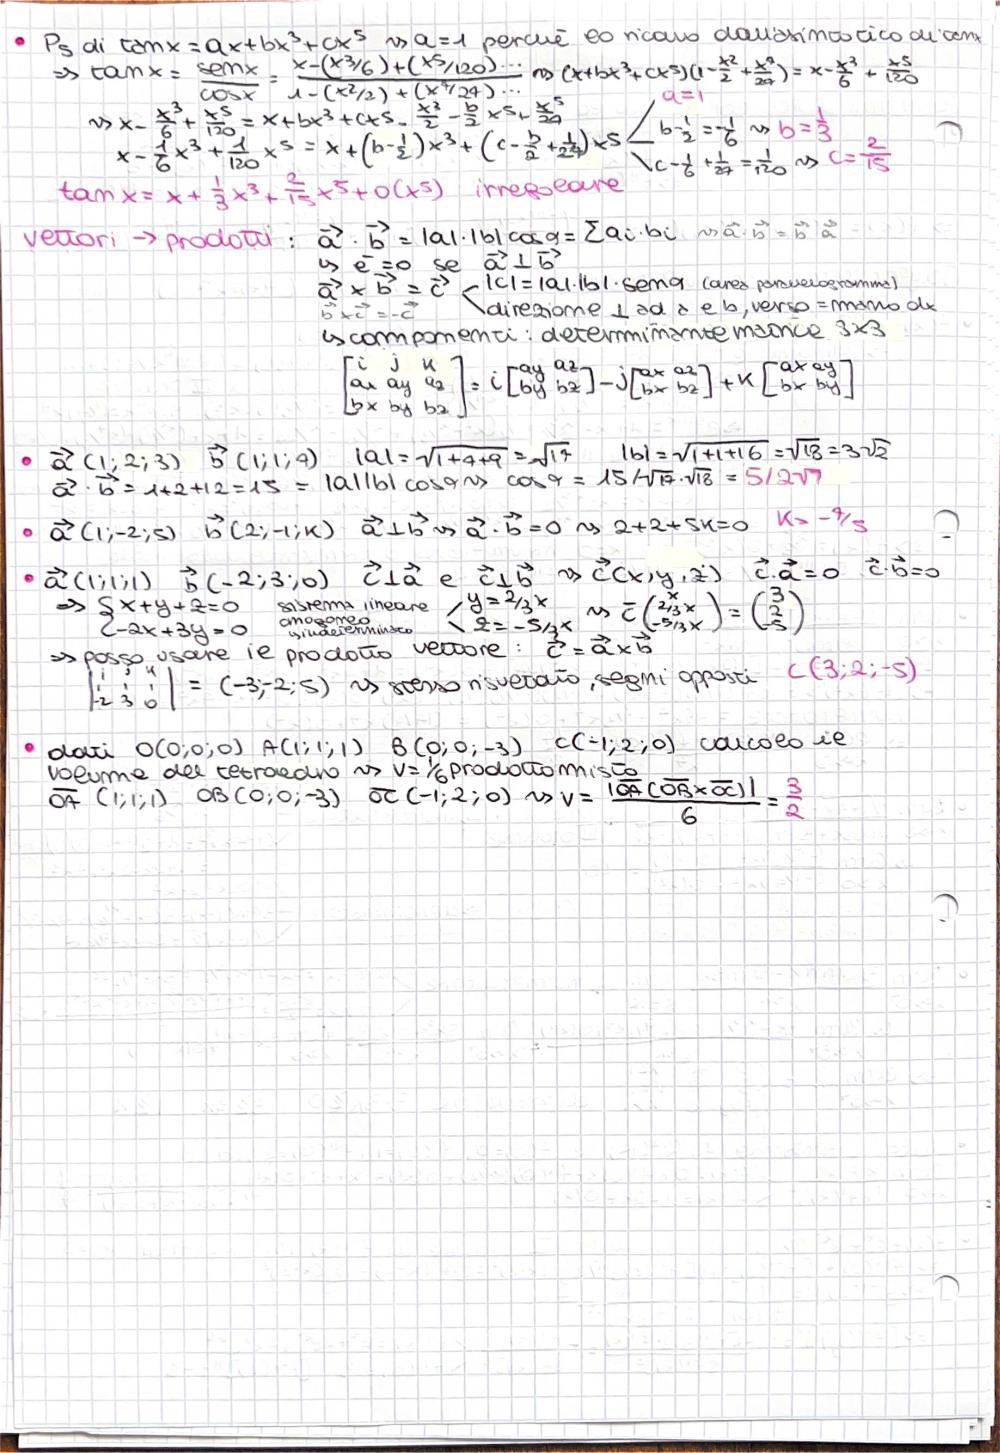 • P5 di tanx = ax+bx³+cx⁵ ⇝ a=1 perché lo ricavo dall'asintotico di tanx
⇒ tanx = senx/cosx = (x-(x³/6)+(x⁵/120)...)/(1-(x²/2)+(x⁴/24)...) ⇝ (x+bx³+cx⁵)(1-x²/2+x⁴/24) = x-x³/6+x⁵/120
⇝ x-x³/6+x⁵/120 = x+bx³+cx⁵-x³/2-b/2 x⁵+x⁵/24 a=1
x-1/6x³+1/120x⁵ = x+(b-1/2)x³+(c-b/2+1/24)x⁵ b-1/2=-1/6 ⇝ b=1/3
c-1/6+1/24=1/120 ⇝ c=2/15
tanx = x+1/3x³+2/15x⁵+o(x⁵) irregolare
vettori → prodotti: a⃗·b⃗ = |a|·|b|cosα = Σai·bi ⇝ a⃗·b⃗ = b⃗ a⃗
↳ è =0 se a⃗⊥b⃗
a⃗×b⃗ = c⃗ |c|=|a|·|b|·senα (area parallelogramma)
b⃗×c⃗=-c⃗ direzione ⊥ ad a e b, verso = mano dx
↳ componenti: determinante matrice 3x3
[i j k; ax ay az; bx by bz] = i[ay az; by bz]-j[ax az; bx bz]+k[ax ay; bx by]
• a⃗(1;2;3) b⃗(1;1;4) |a|=√1+4+9=√17 |b|=√1+1+16=√18=3√2
a⃗·b⃗=1+2+12=15=|a||b|cosα ⇝ cosα=15/√17·√18=5/2√7
• a⃗(1;-2;5) b⃗(2;-1;k) a⃗⊥b⃗ ⇝ a⃗·b⃗=0 ⇝ 2+2+5k=0 k=-4/5
• a⃗(1;1;1) b⃗(-2;3;0) c⃗⊥a⃗ e c⃗⊥b⃗ ⇝ c⃗(x,y,z) c⃗·a⃗=0 c⃗·b⃗=0
⇒ {x+y+z=0 sistema lineare y=2/3x ⇝ c̄(x; 2/3x; -5/3x) = (3; 2; -5)
{-2x+3y=0 omogeneo indeterminato z=-5/3x
⇒ posso usare il prodotto vettore: c⃗=a⃗×b⃗
|i j k; 1 1 1; -2 3 0| = (-3;-2;5) ⇝ stesso risultato, segni opposti C(3;2;-5)
• dati O(0;0;0) A(1;1;1) B(0;0;-3) C(-1;2;0) calcolo il
volume del tetraedro ⇝ V=1/6 prodotto misto
OA (1;1;1) OB(0;0;-3) OC(-1;2;0) ⇝ V=|OA(OB×OC)|/6=3/2